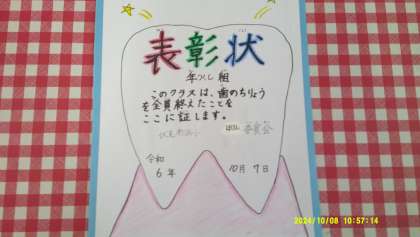 表彰状
年 組
このクラスは、歯のちりょう
を全員終えたことを
ここに証します。
委員会
令和
6年 10月7日
2024/10/08 10:57:14